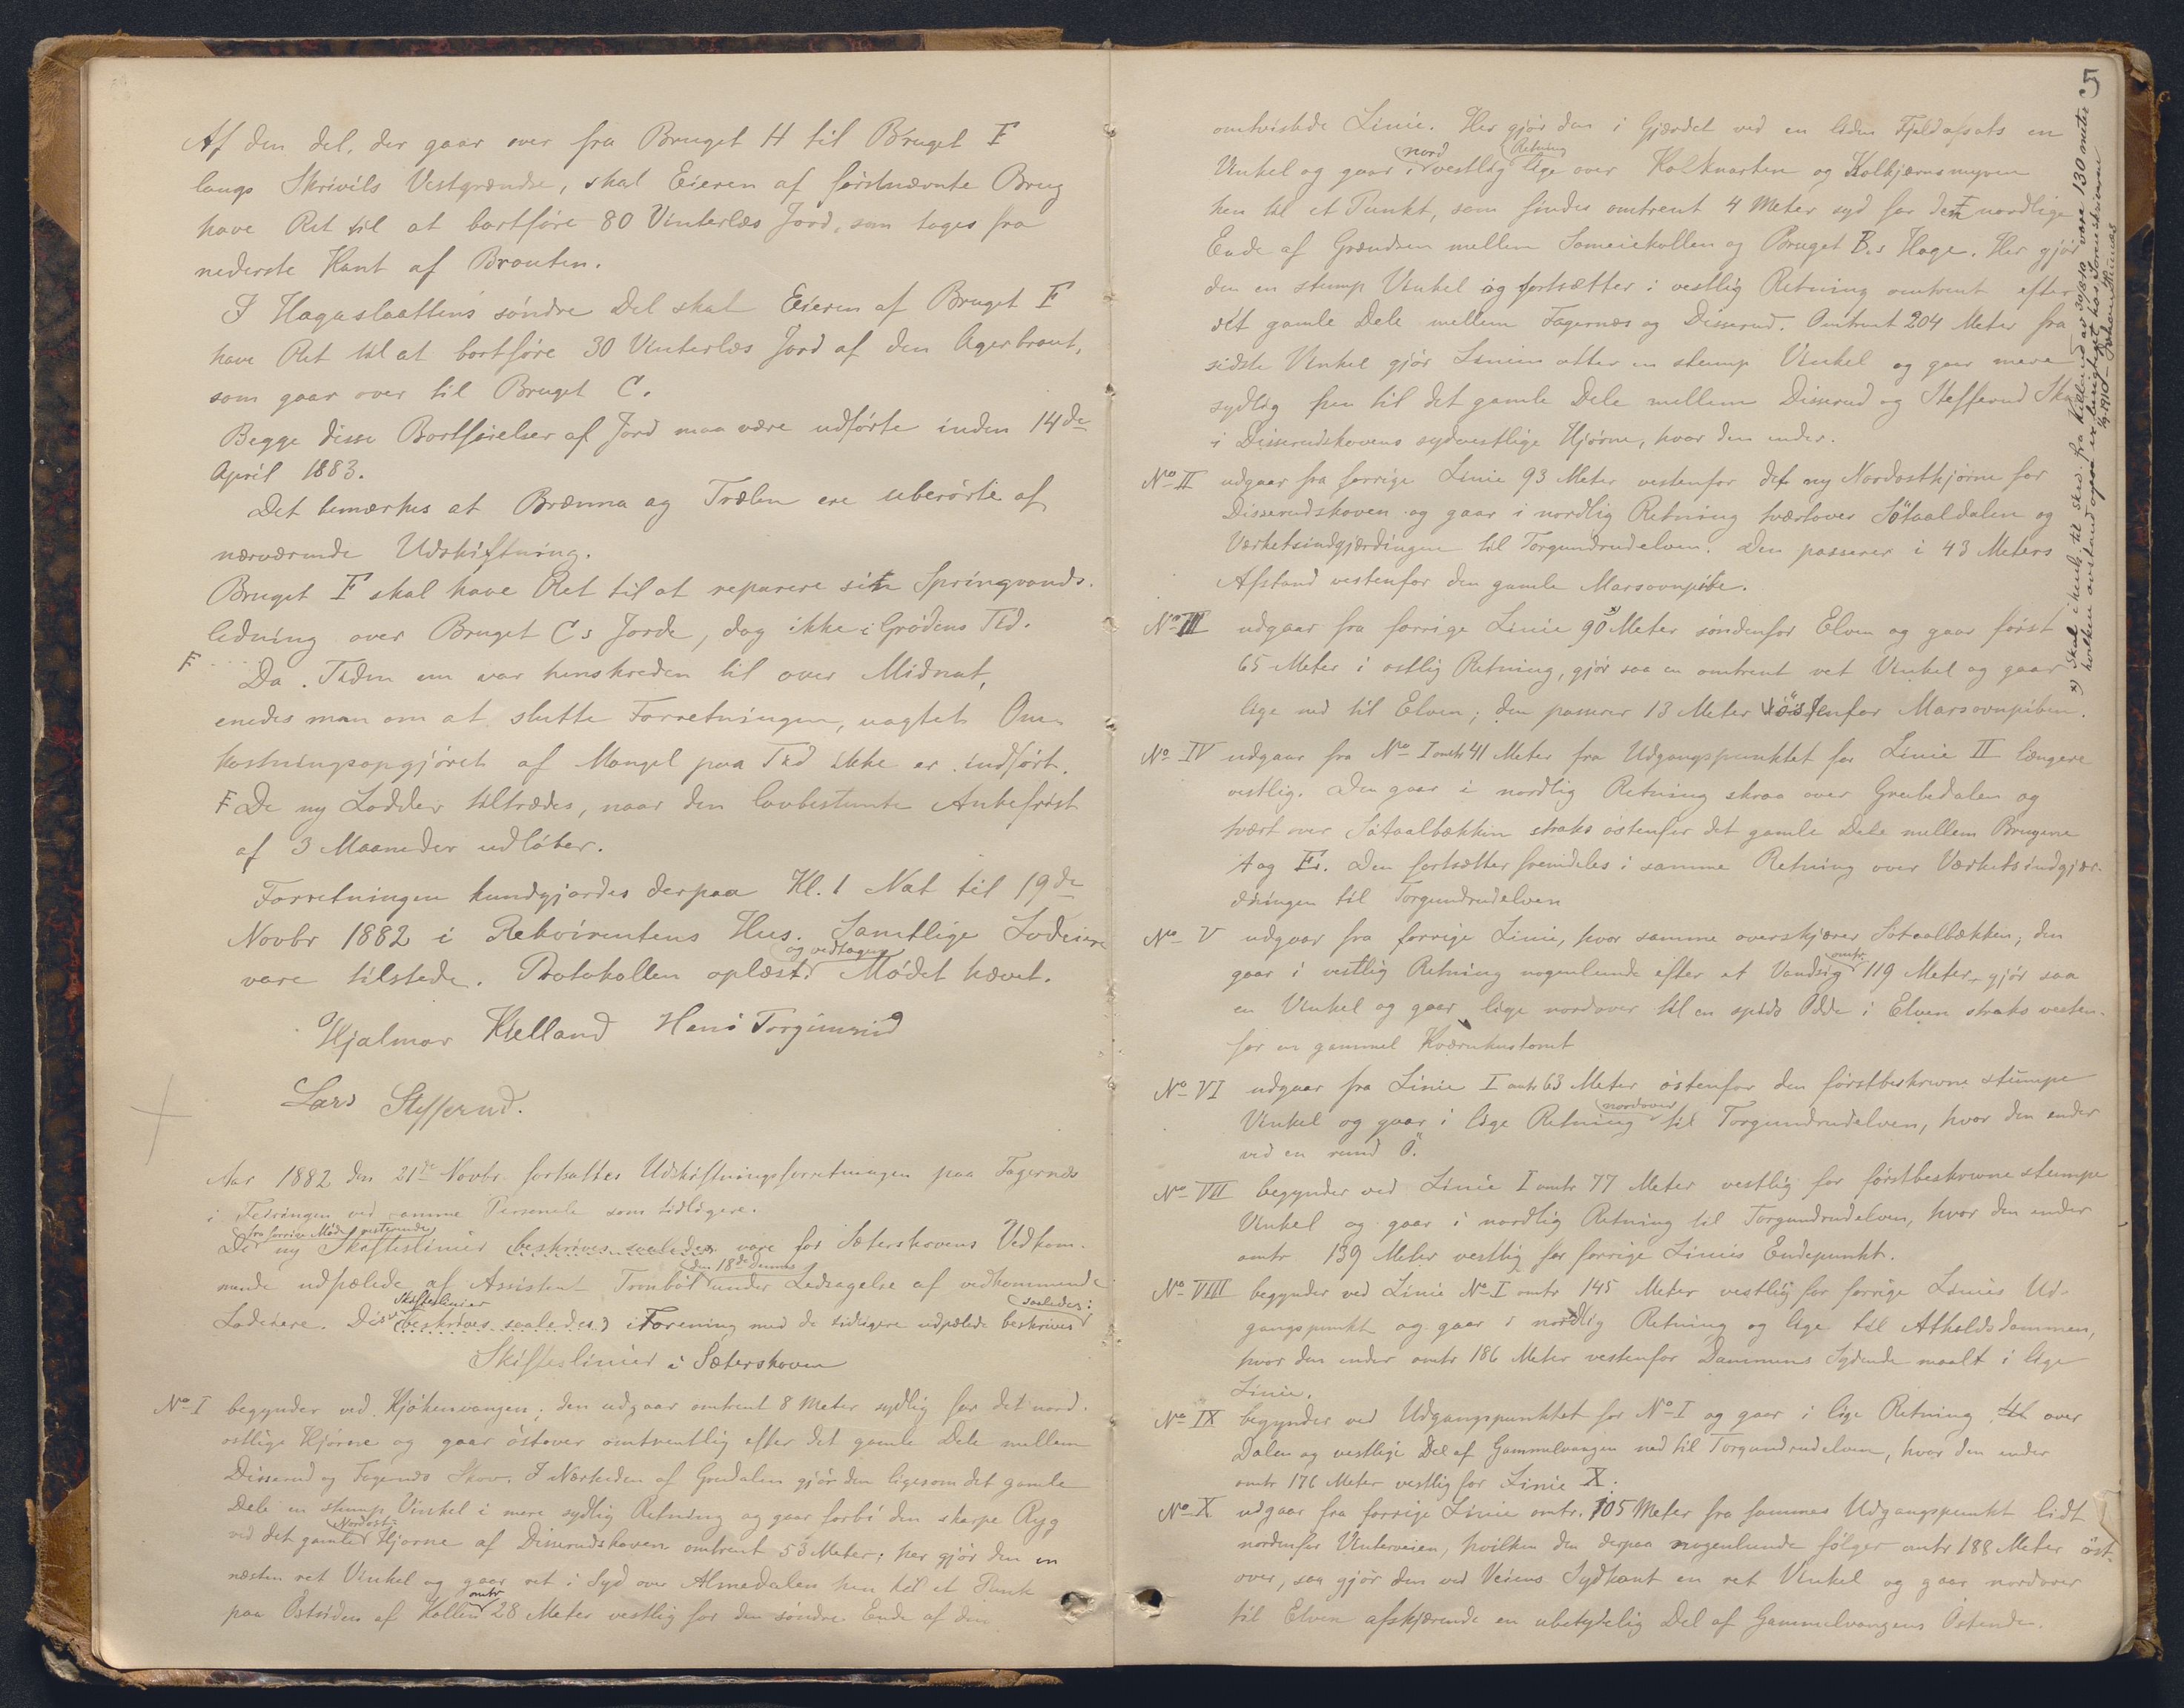 Af den Del, der gaar over fra Bruget H til Bruget F
langs Skrivils Vestgrændse, skal Eieren af förstnævnte Brug
have Ret til at bortföre 80 Vinterlæs Jord, som tages fra
nederste Kant af Brauten.
I Hagaslaattens söndre Del skal Eieren af Bruget F
have Ret til at bortföre 30 Vinterlæs Jord af den Agerbraut,
som gaar over til Bruget C.
Begge disse Bortförelser af Jord maa være udförte inden 14de
April 1883.
Det bemærkes at Brænna og Trælen ere uberörte af
nærværende Udskiftning.
Bruget F skal have Ret til at reparere sin Springvands-
ledning over Bruget Cs Jorde, dog ikke i Grödens Tid.
F Da Tiden nu var henskreden til over Midnat,
enedes man om at slutte Forretningen, uagtet Om-
kostningsopgjöret af Mangel paa Tid ikke er indfört.
F De ny Lodder tiltrædes, naar den lovbestemte Ankefrist
af 3 Maaneder udlöber.
Forretningen kundgjordes derpaa Kl. 1 Nat til 19de
Novbr 1882 i Rekvirentens Hus. Samtlige Lodeiere
vare tilstede. Protokollen oplæst og vedtagen. Mödet hævet.
Hjalmar Kielland Hans Torgimrud
Lars Stefferud.
Aar 1882 den 21de Novbr. fortsattes Udskiftningsforretningen paa Fagernæs
i Fedringen ved samme Personele som tidligere.
De fra forrige Möde resterende ny Skifteslinier beskrives saaledes vare for Sæterskovens Vedkom-
mende udpælede af Assistent Tronböl den 18de dennes under Ledsagelse af vedkommende
Lodeiere. Disse Skifteslinier beskrives saaledes i Forening med de tidligere udpælede beskrives saaledes:
Skifteslinier i Sæterskoven
No I begynder ved Kjökenvangen; den udgaar omtrent 8 Meter sydlig for det nord-
ostlige Hjörne og gaar östover omtrentlig efter det gamle Dele mellem
Disserud og Fagernæs Skov. I Nærheden af Grædalen gjör den ligesom det gamle
Dele en stump Vinkel i mere sydlig Retning og gaar forbi den skarpe Ryg
ved det gamle Nordost-Hjörne af Disserudskoven omtrent 53 Meter; her gjör den en
næsten ret Vinkel og gaar ret i Syd over Almedalen hen til et Punk
paa Östsiden af Kollen omtr 28 Meter vestlig for den söndre Ende af den
5
omtvistede Linie. Her gjör den i Gjærdet ved en liden Fjeldafsats en
Vinkel og gaar i nordvestlig Retning lige over Kolknarten og Kolkjærnsmyren
hen til et Punkt, som findes omtrent 4 Meter syd for den nordlige
Ende af Grændsen mellem Someiekollen og Bruget B.s Hage. Her gjör
den en stump Vinkel og fortsætter i vestlig Retning omtrent efter
det gamle Dele mellem Fagernæs og Disserud. Omtrent 204 Meter fra
sidste Vinkel gjör Linien atter en stump Vinkel og gaar mere
sydlig hen til det gamle Dele mellem Disserud og Stefferud Skov
i Disserudskovens sydvestlige Hjörne, hvor den ender.
No II udgaar fra forrige Linie 93 Meter vestenfor det ny Nordosthjörne for
Disserudskoven og gaar i nordlig Retning tvertover Sötaaldalen og
Værketsindgjærdingen til Torgundrudelven. Den passerer i 43 Meters
Afstand vestenfor den gamle Marsovnpibe.
No III udgaar fra forrige Linie 90 x) Meter söndenfor Elven og gaar först
65 Meter i ostlig Retning, gjör saa en omtrent ret Vinkel og gaar
lige ned til Elven; den passerer 13 Meter östenfor Marsovnpiben.
No IV udgaar fra No I omtr 41 Meter fra Udgangspunktet for Linie II længere
vestlig. Den gaar i nordlig Retning skraa over Grubedalen og
tvert over Sötaalbækken straks östenfor det gamle Dele mellem Brugene
A og Es. Den fortsætter fremdeles i samme Retning over Værketsindgjær-
dningen til Torgundrudelven
No V udgaar fra forrige Linie, hvor samme overskjærer Sötaalbækken; den
gaar i vestlig Retning nogenlunde efter et Vandsig omtr 119 Meter, gjör saa
en Vinkel og gaar lige nordover til en spids Odde i Elven straks vesten-
for en gammel Kværnhustomt
No VI udgaar fra Linie I omtr 63 Meter östenfor den förstbeskrevne stumpe
Vinkel og gaar i lige Retning nordover til Torgundrudelven, hvor den ender
ved en rund Ö.
No VII begynder ved Linie I omtr 77 Meter vestlig for förstbeskrevne stumpe
Vinkel og gaar i nordlig Retning til Torgundrudelven, hvor den ender
omtr 139 Meter vestlig for forrige Linies Endepunkt.
No VIII begynder ved Linie No I omtr 145 Meter vestlig for forrige Linies Ud-
gangspunkt og gaar i nordlig Retning og lige til Atholdsdammen,
hvor den ender omtr 186 Meter vestenfor Dammens Sydende maalt i lige
Linie.
No IX begynder ved Udgangspunktet for No I og gaar i lige Retning til over
Dalen og vestlige Del af Gammelvangen ned til Torgundrudelven, hvor den ender
omtr 176 Meter vestlig for Linie X.
No X udgaar fra forrige Linie omtr. 105 Meter fra sammes Udgangspunkt lidt
nordenfor Vinterveien, hvilken den derpaa nogenlunde fölger omtr 188 Meter öst-
over, saa gjör den ved Veiens Sydkant en ret Vinkel og gaar nordover
til Elven afskjærende en ubetydelig Del af Gammelvangens Östende.
x) Skal i henh. til skr. fra Kielland av 30/8 10 være 130 meter
hvilken avstand ogsaa er
1910 - Johan